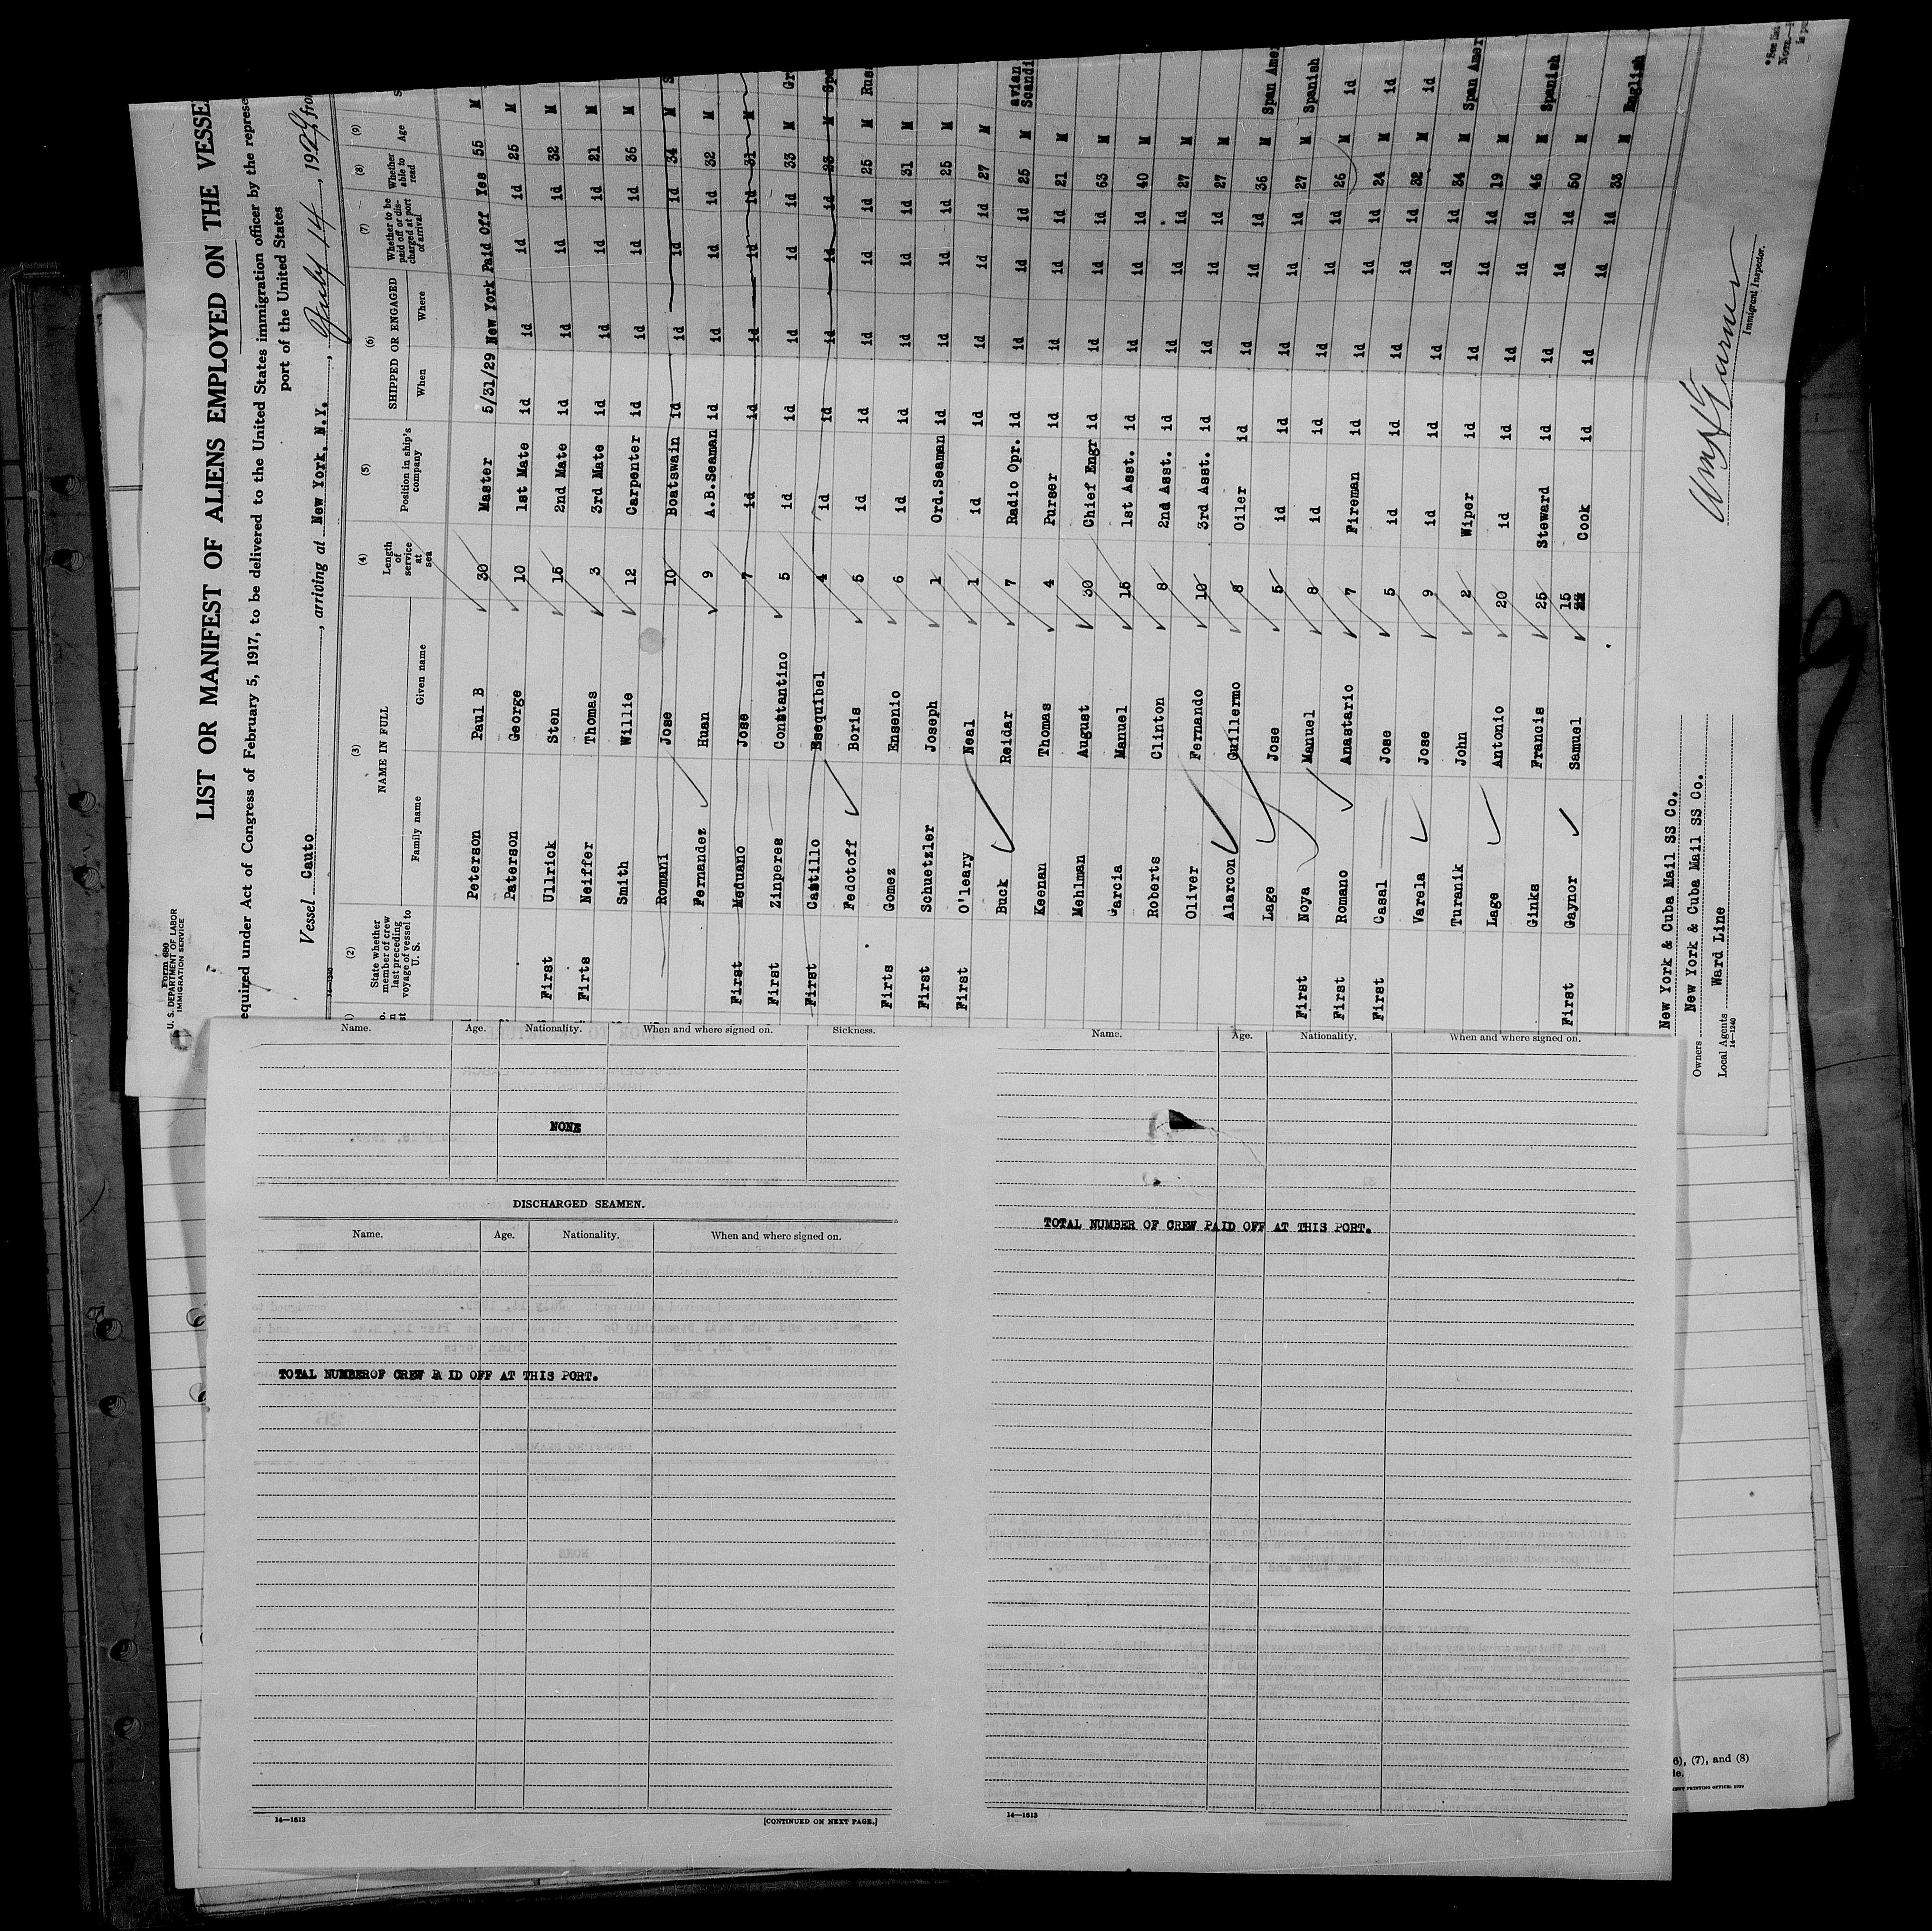 Form 680
U. S. DEPARTMENT OF LABOR
IMMIGRATION SERVICE
LIST OR MANIFEST OF ALIENS EMPLOYED ON THE VESSE
equired under Act of Congress of February 5, 1917, to be delivered to the United States immigration officer by the represe
port of the United States
Vessel Cauto, arriving at New York, N.Y., July 14, 1929, fro
14-1240
(2) (3) (4) (5) (6) (7) (8) (9)
State whether member of crew last preceding voyage of vessel to U. S. NAME IN FULL Length of service at sea Position in ship's company SHIPPED OR ENGAGED Whether to be paid off or discharged at port of arrival Whether able to read Age S
Family name Given name When Where
Peterson Paul B 30 Master 5/31/29 New York Paid Off Yes 55 M
Paterson George 10 1st Mate id id id id 25 M
First Ullrick Sten 15 2nd Mate id id id id 32 M
Firts Neiffer Thomas 3 3rd Mate id id id id 21 M
Smith Willie 12 Carpenter id id id id 36 M
Romani Jose 10 Boatswain id id id id 34 M S
Fernandez Huan 9 A.B.Seaman id id id id 32 M
First Meduano Jose 7 id id id id id 31 M
First Zinperes Constantino 5 id id id id id 33 M Gr
First Castillo Esequibel 4 id id id id id 23 M Spa
Fedotoff Boris 5 id id id id id 25 M Rus
Firts Gomez Ensenio 6 id id id id id 31 M
First Schuetzler Joseph 1 Ord.Seaman id id id id 25 M
First O'leary Neal 1 id id id id id 27 M
Buck Reidar 7 Radio Opr. id id id id 25 M avian Scandi
Keenan Thomas 4 Purser id id id id 21 M
Mehlman August 30 Chief Engr id id id id 63 M
Garcia Manuel 15 1st Asst. id id id id 40 M
Roberts Clinton 8 2nd Asst. id id id id 27 M
Oliver Fernando 10 3rd Asst. id id id id 27 M
Alarcon Guillermo 8 Oiler id id id id 36 M Span Amer
Lage Jose 5 id id id id id 27 M Spanish
First Noya Manuel 8 id id id id id 26 M id
First Romano Anastario 7 Fireman id id id id 24 M id
First Casal Jose 5 id id id id id 32 M id
Varela Jose 9 id id id id id 34 M Span Amer
Turanik John 2 Wiper id id id id 19 M
Lage Antonio 20 id id id id id 46 M Spanish
Ginks Francis 25 Steward id id id id 50 M
First Gaynor Samuel 15 Cook id id id id 33 M English
New York & Cuba Mail SS Co.
Owners New York & Cuba Mail SS Co.
Local Agents Ward Line
14-1240
Immigrant Inspector.
*See list
NOTE.
is p
Name. Age. Nationality. When and where signed on. Sickness.
NONE
DISCHARGED SEAMEN.
Name. Age. Nationality. When and where signed on.
TOTAL NUMBEROF CREW PA ID OFF AT THIS PORT.
14—1613 [CONTINUED ON NEXT PAGE.]
Name. Age. Nationality. When and where signed on.
TOTAL NUMBER OF CREW PAID OFF AT THIS PORT.
14—1613
6), (7), and (8)
le.